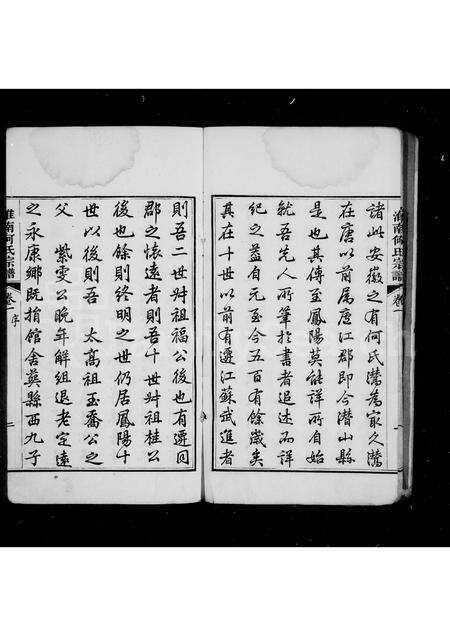 諸此安徽之有何氏灊為家久灊
在唐以前属廬江郡即今潛山縣
是也其傳至鳳陽莫能詳所自始
就吾先人所筆於書者追述而詳
紀之蓋自元至今五百有餘歲矣
其在十世以前有遷江蘇武進者
淮南何氏宗譜 卷一 序 二
則吾二世叔祖福公後也有遷回
郡之懷遠者則吾十世叔祖桂公
後也餘則終明之世仍居鳳陽十
世以後則吾 太高祖玉喬公之
父 紫雯公晚年解組退老定遠
之永康鄉既捐館舍奠縣西九子
淮南何氏宗譜 卷一 序 二